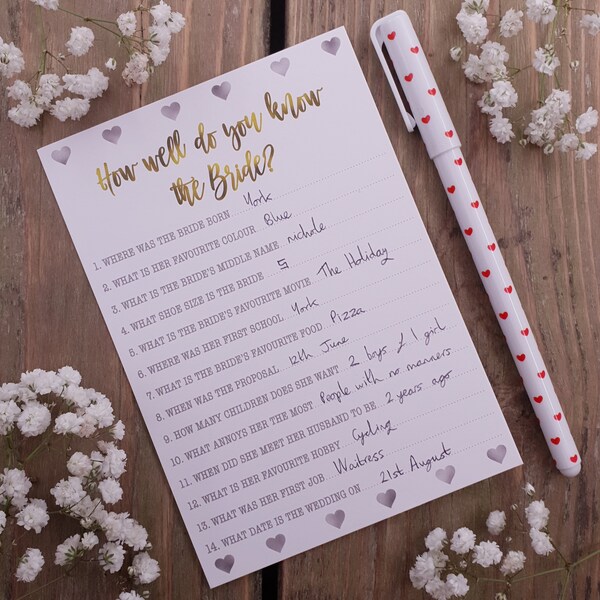 How well do you know
the Bride?
1. WHERE WAS THE BRIDE BORN York
2. WHAT IS HER FAVOURITE COLOUR Blue
3. WHAT IS THE BRIDE'S MIDDLE NAME nichole
4. WHAT SHOE SIZE IS THE BRIDE 5
5. WHAT IS THE BRIDE'S FAVOURITE MOVIE The Holiday
6. WHERE WAS HER FIRST SCHOOL York
7. WHAT IS THE BRIDE'S FAVOURITE FOOD Pizza
8. WHEN WAS THE PROPOSAL 12th June
9. HOW MANY CHILDREN DOES SHE WANT 2 boys & 1 girl
10. WHAT ANNOYS HER THE MOST People with no manners
11. WHEN DID SHE MEET HER HUSBAND TO BE 2 years ago
12. WHAT IS HER FAVOURITE HOBBY Cycling
13. WHAT WAS HER FIRST JOB Waitress
14. WHAT DATE IS THE WEDDING ON 21st August